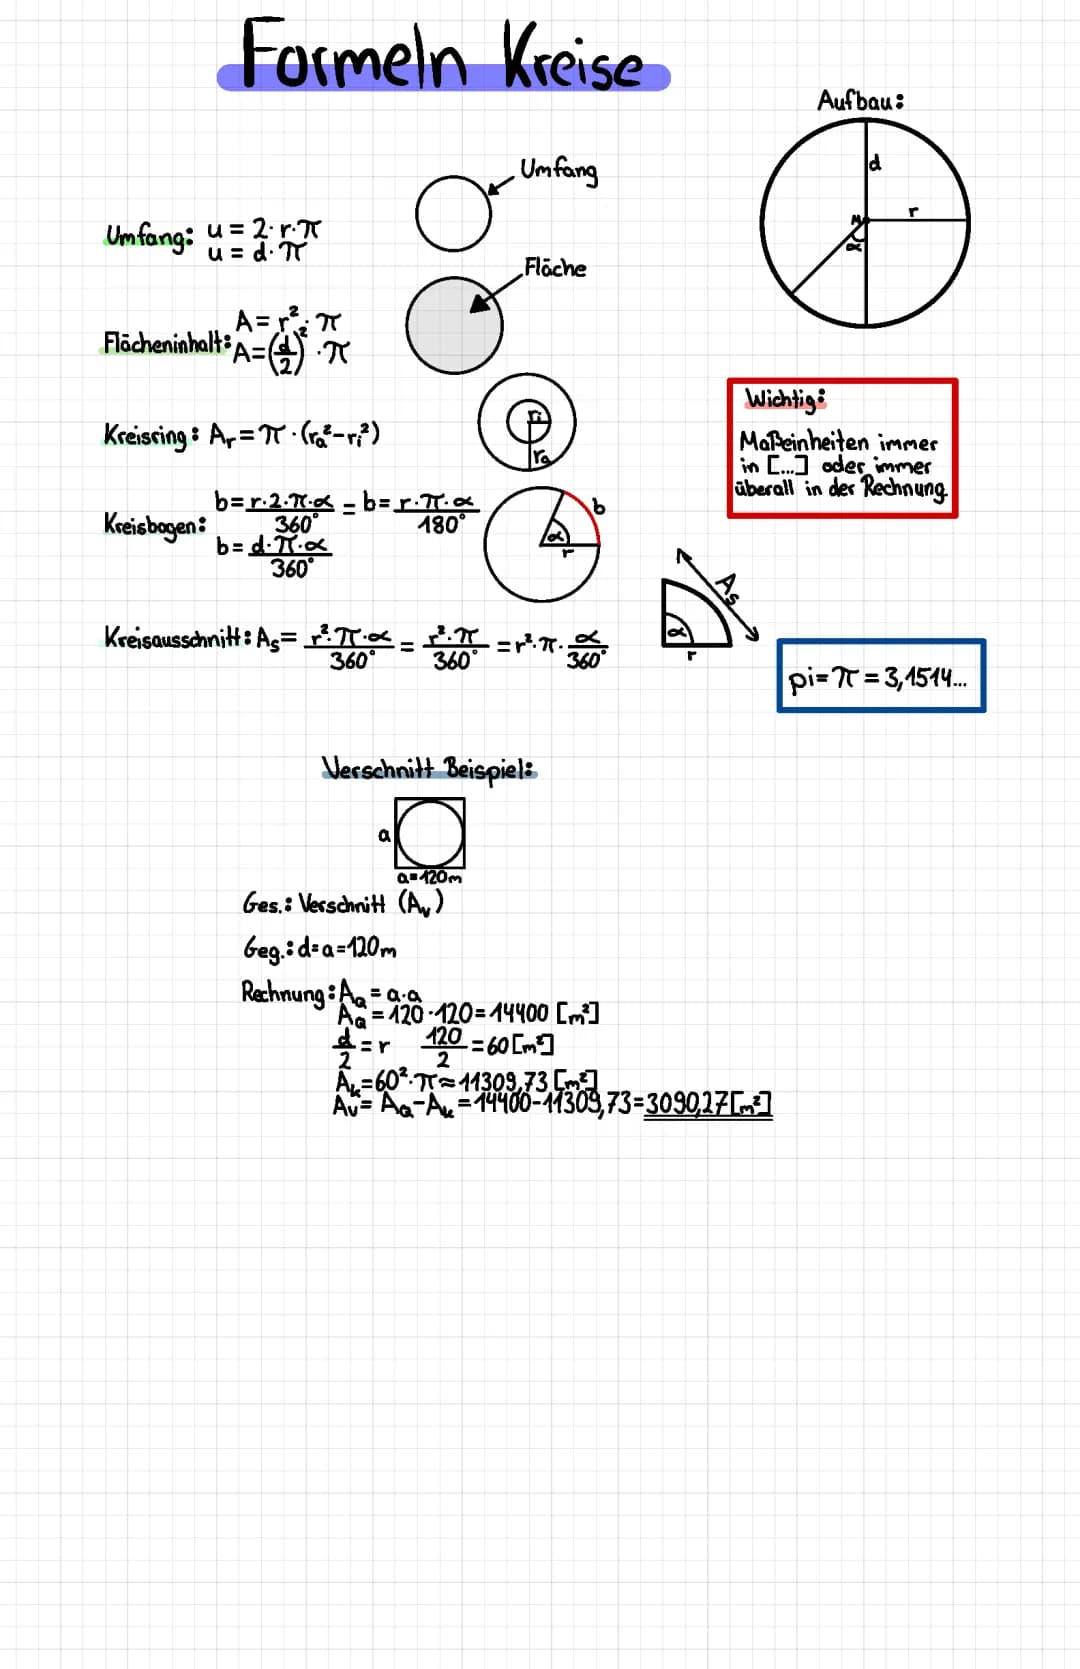 Formeln Kreise
Aufbau:
d
M
r
α
Umfang
Umfang: u = 2·r·π
u = d·π
Fläche
Flächeninhalt: A = r²·π
A = (d/2)²·π
Wichtig:
Maßeinheiten immer
in [...] oder immer
überall in der Rechnung.
Kreisring: Aᵣ = π·(rₐ²-rᵢ²)
rᵢ
rₐ
Kreisbogen: b = r·2·π·α/360° = b = r·π·α/180°
b = d·π·α/360°
b
α
r
Kreisausschnitt: Aₛ = r²·π·α/360° = r²·π/360° = r²·π·α/360°
Aₛ
α
r
pi = π = 3,1514...
Verschnitt Beispiel:
a
a=120m
Ges.: Verschnitt (Aᵥ)
Geg.: d=a=120m
Rechnung: A_Q = a·a
A_Q = 120·120 = 14400 [m²]
d/2 = r 120/2 = 60 [m²]
Aₖ = 60²·π ≈ 11309,73 [m²]
Aᵥ = A_Q - Aₖ = 14400-11309,73 = 3090,27 [m²]